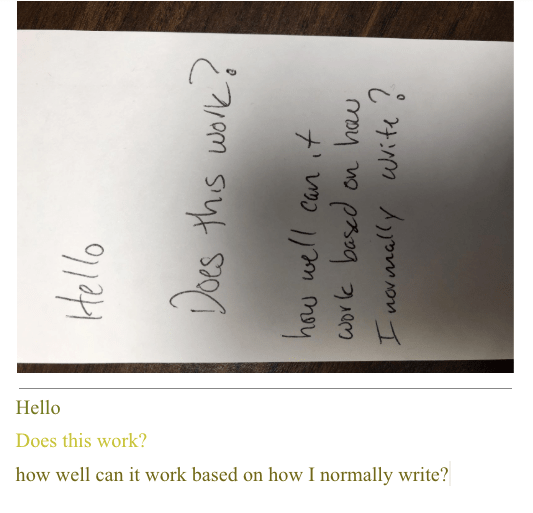 Hello
Does this work?
how well can it
work based on how
I normally write?
Hello
Does this work?
how well can it work based on how I normally write?